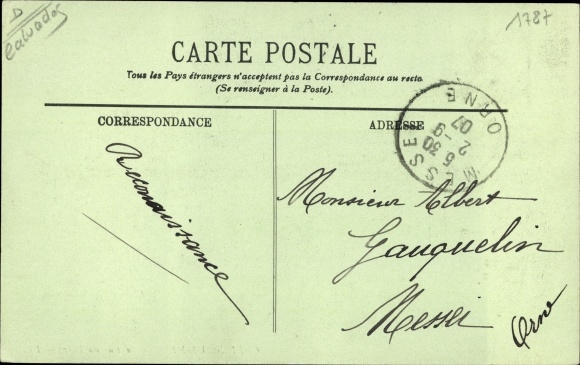 D
Calvados
1787
CARTE POSTALE
Tous les Pays étrangers n'acceptent pas la Correspondance au recto.
(Se renseigner à la Poste).
CORRESPONDANCE
ADRESSE
MESSEI
ORNE
6 30
2 - 9
07
Reconnaissance
Monsieur Albert
Gauquelin
Messei
Orne